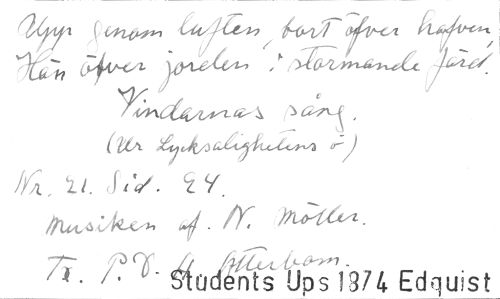 Upp genom luften, bort öfver hafven,
Hän öfver jorden i stormande färd.
Vindarnas sång.
(Ur Lycksalighetens ö)
Nr. 21. Sid. 24.
Musiken af. N. Möller.
Tx. P. D. A. Atterbom.
Students Ups 1874 Edquist